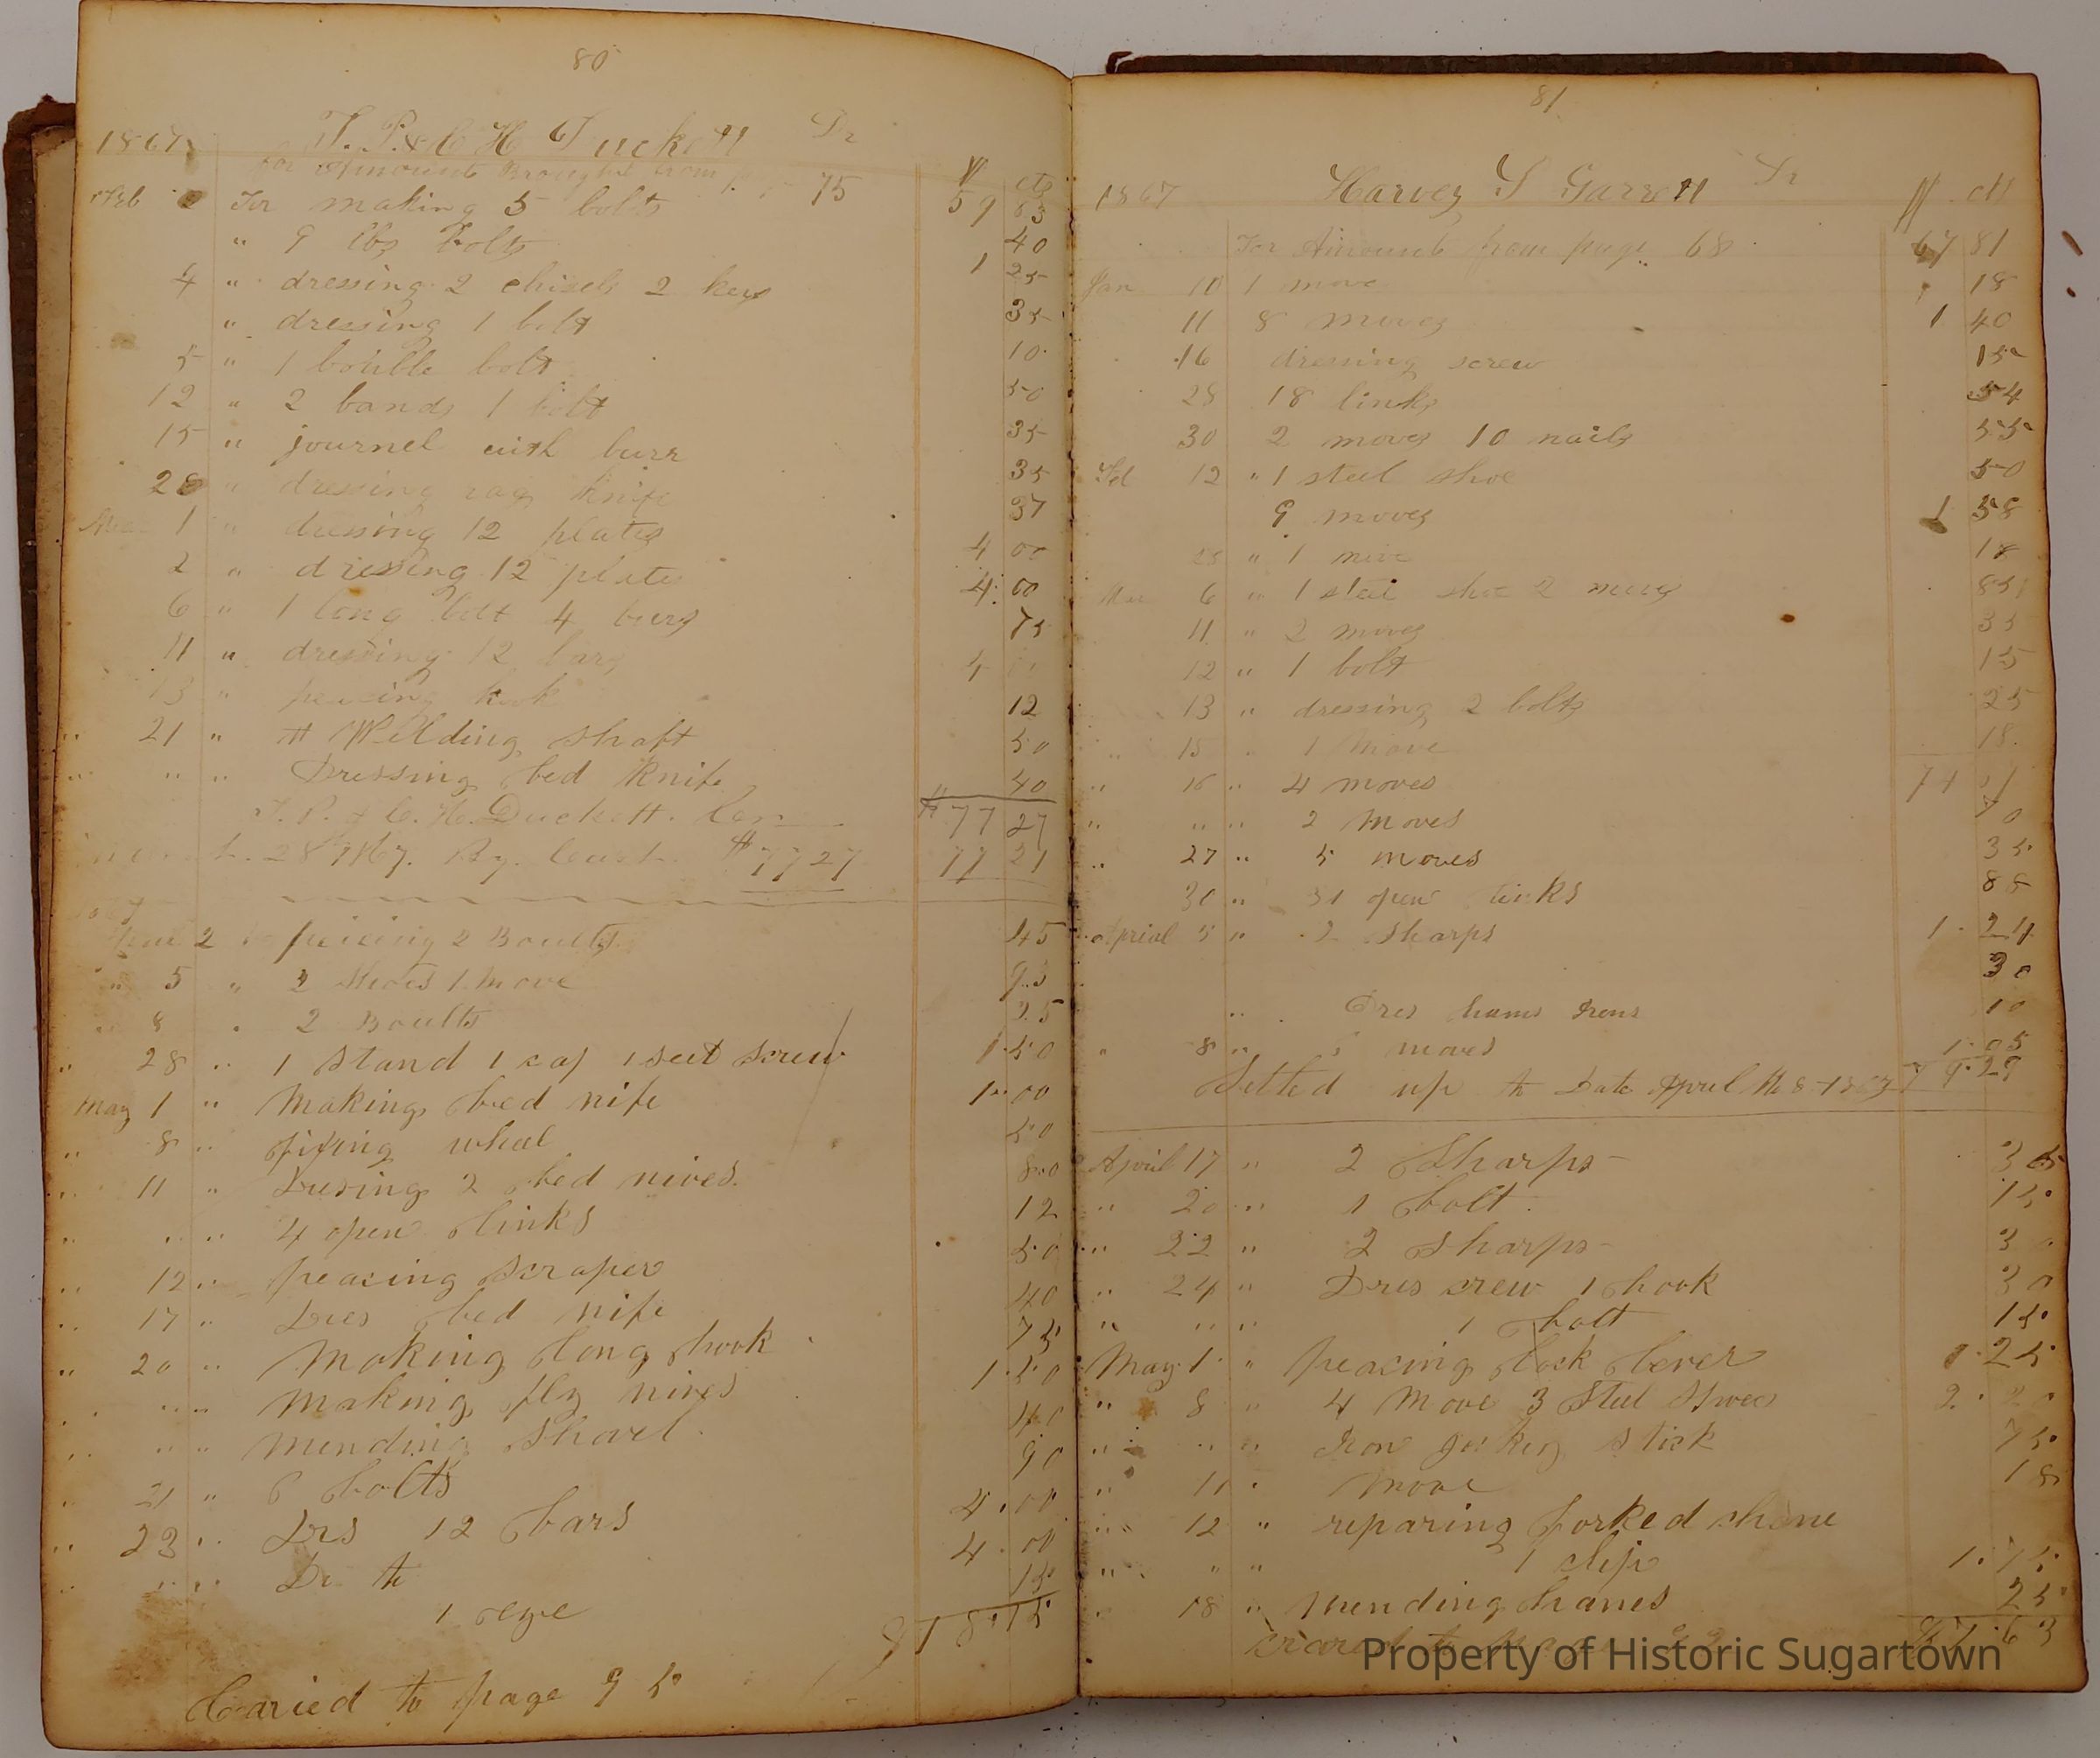 80
1867 T. P. & C H Tuckett Dr
For Amount Brought from 75 $ cts
Feb For making 5 bolts 59 63
" 9 lbs bolts 40
4 " dressing 2 chisels 2 keys 1 25
" dressing 1 bolt 35
5 " 1 bolt 10
12 " 2 bands 1 bolt 50
15 " journel with burr 35
28 " dressing rag knife 35
Mar 1 " dressing 12 plates 37
2 " dressing 12 plates 4 00
6 " 1 long bolt 4 burs 4 00
11 " dressing 12 bars 75
13 " 4
21 " Welding shaft 12
" " " Dressing bed Knife 50
40
T. P. & C. H. Duckett. $77 27
28 1867. By. Cash. $77 27 77 27
2 peicing 2 Boults 45
" 5 " 2 Shoes 1 move 93
" 8 " 2 Boults 25
" 28 " 1 Stand 1 cap 1 seet screw 1 50
May 1 " Making bed nife 1 00
" 8 " fixing wheel 50
" 11 " Dresing 2 bed nives 80
" " " 4 open links 12
" 12 " peacing scraper 50
" 17 " Dres bed nife 40
" 20 " Making long hook 75
" " " Making fly nives 1 50
" " " mending shovel 40
" 21 " 6 bolts 90
" 23 " Drs 12 bars 4 00
" " " Do to 4 00
1 eye 15
18 15
Caried to page 95
81
1867 Harvey S Garrett Dr $ cts
For Amount from page 68 67 81
Jan 10 1 move 18
11 8 moves 1 40
16 dressing screw 15
28 18 links 54
30 2 moves 10 nails 55
Feb 12 " 1 steel shoe 50
9 moves 1 58
23 " 1 move 18
Mar 6 " 1 steel shoe 2 moves 85
11 " 2 moves 35
12 " 1 bolt 15
13 " dressing 2 bolts 25
" 15 " 1 Move 18
" 16 " 4 moves 70
" " " 2 Moves 35
" 27 " 5 moves 88
30 " 31 open links
Aprial 5 " 2 Sharps 1 24
30
" Dres hams Irons 10
" 8 " moves 1 05
Setled up to Date April the 8 1867 79 29
April 17 " 2 Sharps 36
" 20 " 1 bolt 15
" 22 " 2 Sharps 3
" 24 " Dres screw 1 hook 30
" " " 1 bolt 15
May 1 " peacing lock lever 1 25
" 8 " 4 Move 3 Steel Shoes 2
" " " Iron jockey stick 75
" 11 " move 18
" 12 " reparing forked
" " " 1 clip 1 75
" 18 " mending hames 25
63
Property of Historic Sugartown